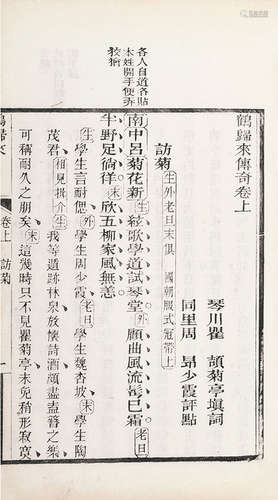 鶴歸來傳奇卷上
琴川瞿 頡菊亭塡詞
同里周 昻少霞評點
訪菊 生外老旦末俱 國朝服式冠帶上
南中呂菊花新 生 絃歌學道試琴堂 外 顧曲風流鬢已霜 老旦
半野足徜徉 末 欣五柳家風無恙
各人自道名貼
本姓開手便亦
狡獪
生 學生言耐偲 外 學生周少霞 老旦 學生魏杏坡 末 學生陶
茂君 相見揖介 生 我等遁跡林泉放懷詩酒頗盡盍簪之樂
可稱耐久之朋矣 末 這幾時只不見瞿菊亭未免稍形寂寞
鶴歸來
卷上 訪菊
一